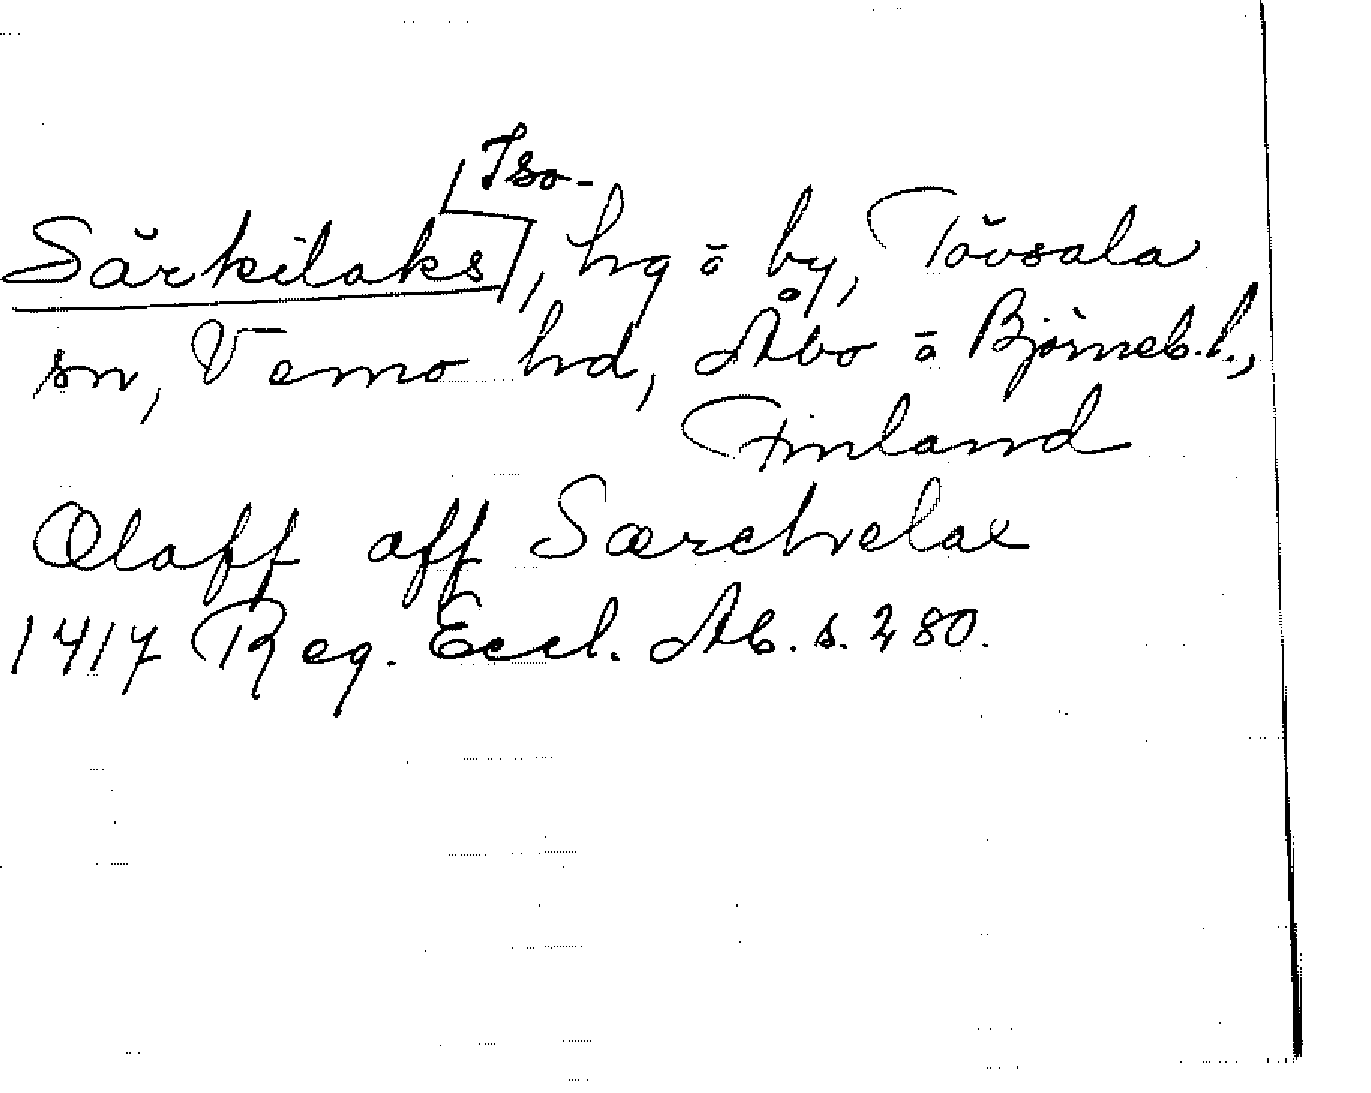 Iso-
Särkilaks, hg o by, Tövsala
sn, Vemo hd, Åbo o Björneb. l.,
Finland
Olaff aff Särchelax
1417 Reg. Eccl. Ab. s. 280.